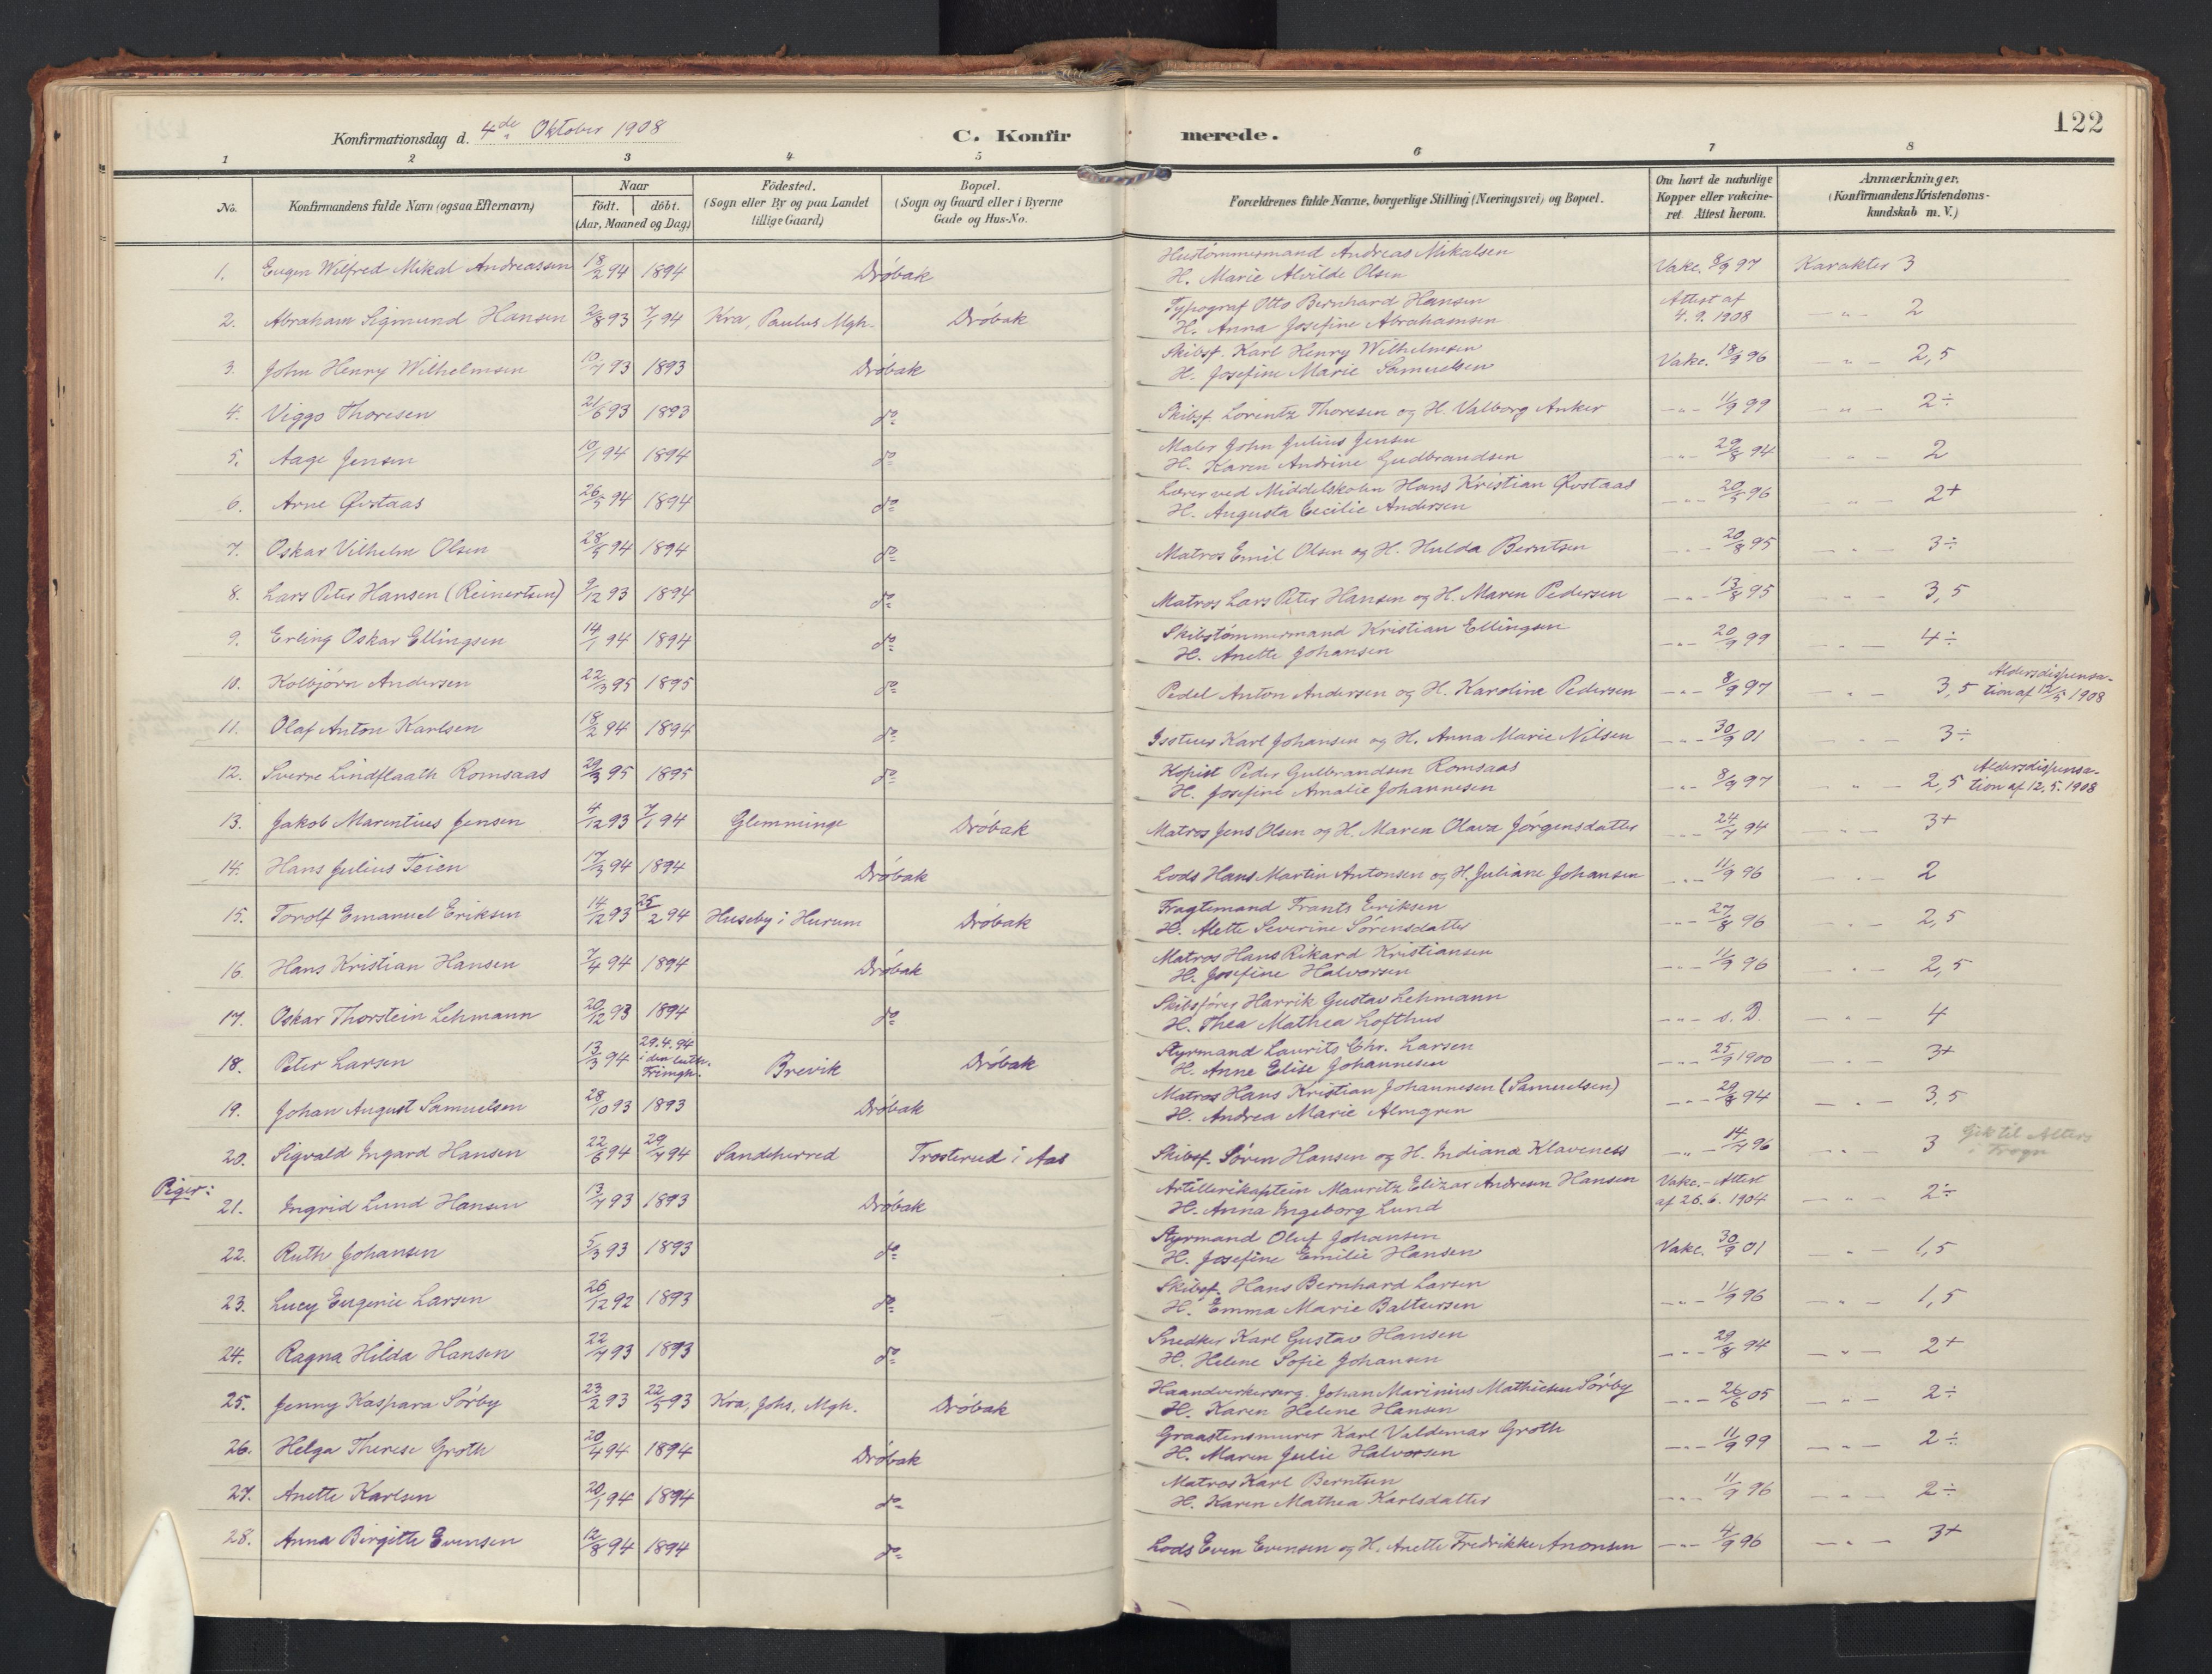 122
Konfirmationsdag d. 4de Oktober 1908
C. Konfirmerede.
1 2 3 4 5 6 7 8
No.
Konfirmandens fulde Navn (ogsaa Efternavn)
Naar
födt. döbt.
(Aar, Maaned og Dag)
Födested.
(Sogn eller By og paa Landet
tillige Gaard)
Bopæl.
(Sogn og Gaard eller i Byerne
Gade og Hus-No.
Forældrenes fulde Navne, borgerlige Stilling (Næringsvei) og Bopæl.
Om havt de naturlige
Kopper eller vakcine-
ret Attest herom.
Anmærkninger.
(Konfirmandens Kristendoms-
kundskab m. V.)
1. Eugen Wilfred Mikal Andreassen 18/2 94 1894 Dröbak Hustömmermand Andreas Mikalsen
H. Marie Alvilde Olsen Vakc. 8/9 97 Karakter 3
2. Abraham Sigmund Hansen 2/8 93 7/1 94 Kra, Paulus Mgh. Dröbak Typograf Otto Bernhard Hansen
H. Anna Josefine Abrahamsen Attest af
4. 9. 1908 — " — 2
3. John Henry Wilhelmsen 10/7 93 1893 Dröbak Skibsf. Karl Henry Wilhelmsen
H. Josefine Marie Samuelsen Vakc. 18/9 96 — " — 2,5
4. Viggo Thoresen 21/6 93 1893 do Skibsf. Lorentz Thoresen og H. Valborg Anker — " — 11/9 99 — " — 2÷
5. Aage Jensen 10/1 94 1894 do Maler John Julius Jensen
H. Karen Andrine Gudbrandsen — " — 29/8 94 — " — 2
6. Arne Øvstaas 26/5 94 1894 do Lærer ved Middelskolen Hans Kristian Øvstaas
H. Augusta Cecilie Andersen — " — 20/5 96 — " — 2+
7. Oskar Vilhelm Olsen 28/5 94 1894 do Matros Emil Olsen og H. Hulda Berntsen — " — 20/8 95 — " — 3÷
8. Lars Peter Hansen (Reinertsen) 9/12 93 1894 do Matros Lars Peter Hansen og H. Maren Pedersen — " — 13/8 95 — " — 3,5
9. Erling Oskar Ellingsen 14/1 94 1894 do Skibstömmermand Kristian Ellingsen
H. Anette Johansen — " — 20/9 99 — " — 4÷
10. Kolbjörn Andersen 22/3 95 1895 do Pedel Anton Andersen og H. Karoline Pedersen — " — 8/9 97 — " — 3,5 Aldersdispensa-
tion af 12/5 1908
11. Olaf Anton Karlsen 18/2 94 1894 do Isstuer Karl Johansen og H. Anna Marie Nilsen — " — 30/9 01 — " — 3÷
12. Sverre Lindflaath Romsaas 29/3 95 1895 do Kopist Peder Gulbrandsen Romsaas
H. Josefine Amalie Johannesen — " — 8/9 97 — " — 2,5 Aldersdispensa-
tion af 12. 5. 1908
13. Jakob Marentius Jensen 4/12 93 7/1 94 Glemminge Dröbak Matros Jens Olsen og H. Maren Olava Jörgensdatter — " — 24/7 94 — " — 3+
14. Hans Julius Teien 17/3 94 1894 Dröbak Lods Hans Martin Antonsen og H. Juliane Johansen — " — 11/9 96 — " — 2
15. Torolf Emanuel Eriksen 14/12 93 25/2 94 Huseby i Hurum Dröbak Fragtemand Frants Eriksen
H. Alette Severine Sörensdatter — " — 27/8 96 — " — 2,5
16. Hans Kristian Hansen 7/4 94 1894 Dröbak Matros Hans Rikard Kristiansen
H. Josefine Halvorsen — " — 11/9 96 — " — 2,5
17. Oskar Thorstein Lehmann 20/12 93 1894 do Skibsförer Harrik Gustav Lehmann
H. Thea Mathea Lofthus — " — s. D. — " — 4
18. Peter Larsen 13/3 94 29.4.94
i den luth.
Frimgh. Brevik Dröbak Styrmand Laurits Chr. Larsen
H. Anne Elise Johannesen — " — 25/9 1900 — " — 3+
19. Johan August Samuelsen 28/10 93 1893 Dröbak Matros Hans Kristian Johannesen (Samuelsen)
H. Andrea Marie Almgren — " — 29/8 94 — " — 3,5
20. Sigvald Ingard Hansen 22/6 94 29/7 94 Sandeherred Trosterud i Aas Skibsf. Sören Hansen og H. Indiana Klaveness — " — 14/7 96 — " — 3 Gik til Alters
i Frogn
Piger:
21. Ingrid Lund Hansen 13/7 93 1893 Dröbak Artillerikaptein Mauritz Elizar Andresen Hansen
H. Anna Ingeborg Lund Vakc. - Attest
af 26. 6. 1904 — " — 2÷
22. Ruth Johansen 5/3 93 1893 do Styrmand Oluf Johansen
H. Josefine Emilie Hansen Vakc. 30/9 01 — " — 1,5
23. Lucy Eugenie Larsen 26/12 92 1893 do Skibsf. Hans Bernhard Larsen
H. Emma Marie Baltsersen — " — 11/9 96 — " — 1,5
24. Ragna Hilda Hansen 22/7 93 1893 do Snedker Karl Gustav Hansen
H. Helene Sofie Johansen — " — 29/8 94 — " — 2+
25. Jenny Kaspara Sörby 23/2 93 22/5 93 Kra, Johs. Mgh. Dröbak Haandverkersvg. Johan Marinius Mathiesen Sörby
H. Karen Helene Hansen — " — 26/6 05 — " — 2÷
26. Helga Therese Groth 20/4 94 1894 Dröbak Graastensmurer Karl Valdemar Groth
H. Maren Julie Halvorsen — " — 11/9 99 — " — 2÷
27. Anette Karlsen 20/1 94 1894 do Matros Karl Berntsen
H. Karen Mathea Karlsdatter — " — 11/9 96 — " — 2÷
28. Anna Birgitte Evensen 12/8 94 1894 do Lods Even Evensen og H. Anette Fredrikke Anonsen — " — 4/9 96 — " — 3+